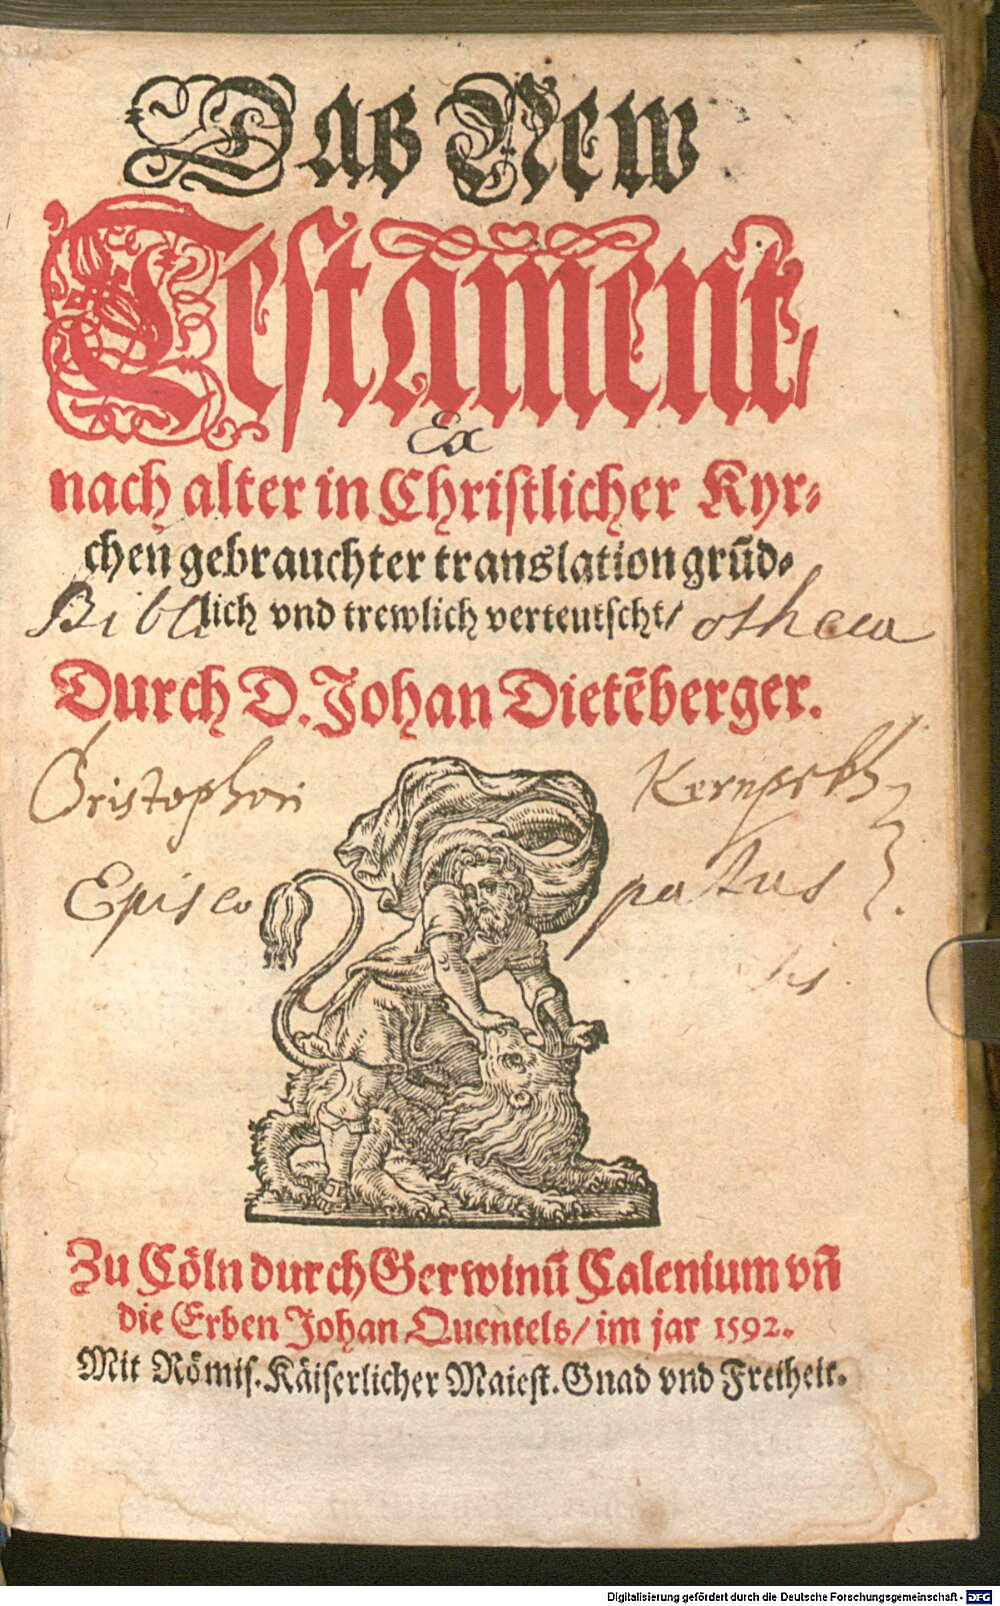 Das New
Testament/
Ex
nach alter in Christlicher Kyr⸗
chen gebrauchter translation grūd⸗
lich vnd trewlich verteutscht/
Bibli otheca
Durch D. Johan Dietēberger.
Cristophori
Episco patus
Zu Cöln durch Gerwinū Calenium vñ
die Erben Johan Quentels/ im jar 1592.
Mit Römis. Käiserlicher Maiest. Gnad vnd Freiheit.
Digitalisierung gefördert durch die Deutsche Forschungsgemeinschaft - DFG